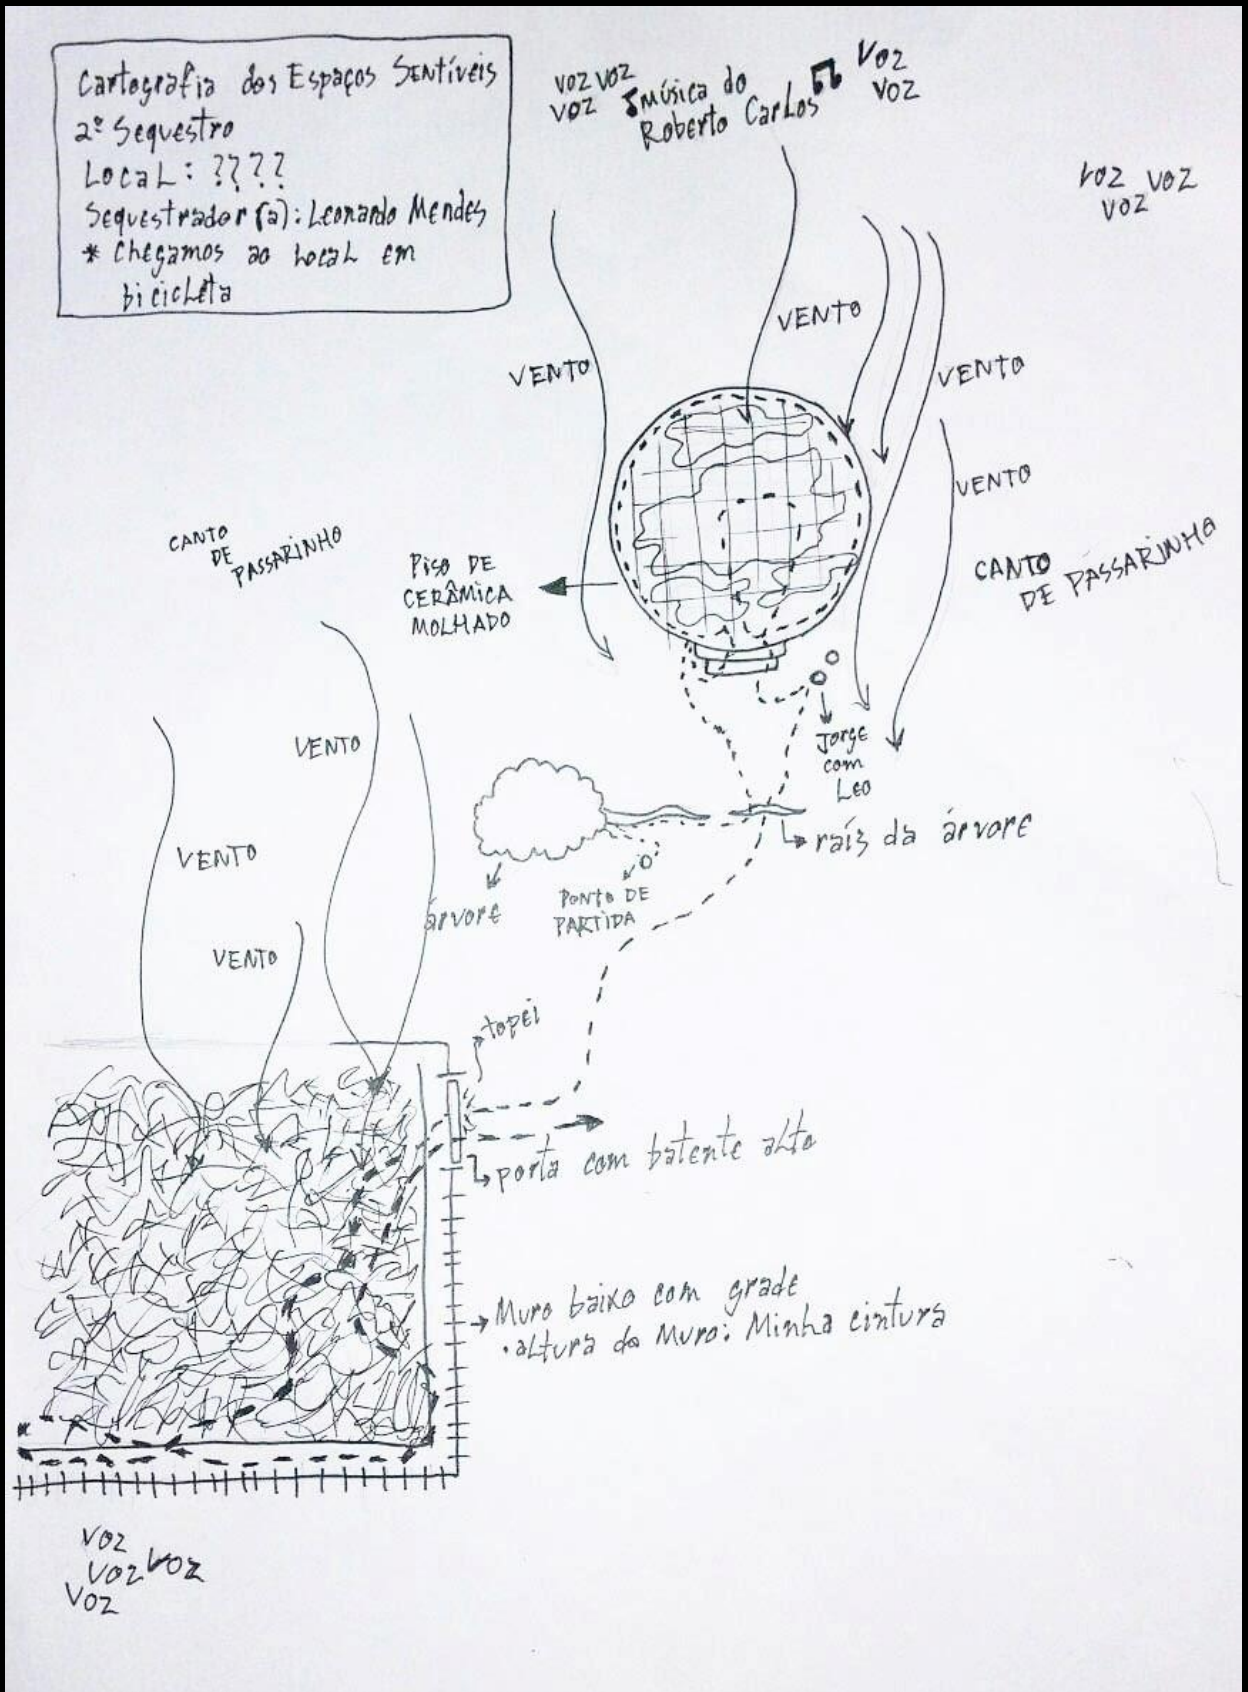 Cartografia dos Espaços Sentíveis
2º Sequestro
Local: ????
Sequestrador(a): Leonardo Mendes
* Chegamos ao local em
bicicleta
VOZ VOZ
VOZ
Música do
Roberto Carlos
VOZ
VOZ
VOZ VOZ
VOZ
VENTO
VENTO
VENTO
VENTO
CANTO
DE
PASSARINHO
PISO DE
CERÂMICA
MOLHADO
CANTO
DE PASSARINHO
Jorge
com
Leo
VENTO
VENTO
VENTO
raís da árvore
árvore
PONTO DE
PARTIDA
topei
porta com batente alto
Muro baixo com grade
• altura do Muro: Minha cintura
VOZ
VOZ VOZ
VOZ